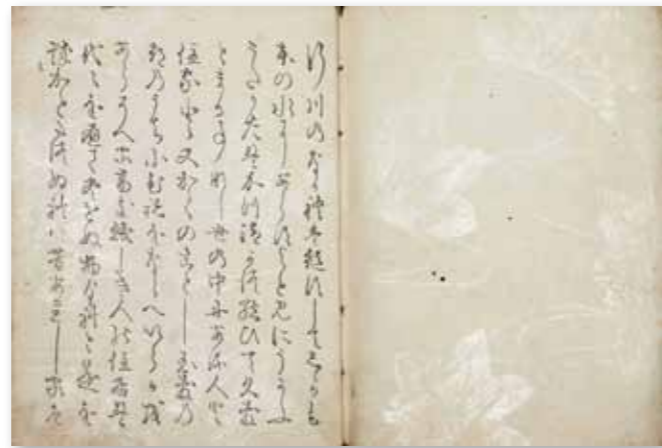 行川のなかれは絶すしてしかも
本の水にあらすよとみにうかふ
うたかたはかつ消かつ結ひて久敷
とまる事なし世の中にある人と
住家と又かくのことし玉敷の
都のうちにむねをならへいらかを
あらそへる高き賤しき人の住居は
代々を経てつきせぬ物なれと是を
誠かとたつぬれは昔ありし家は